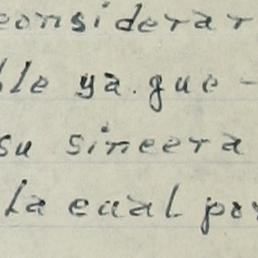 considerar
ble ya.que -
su sincera
la cual por